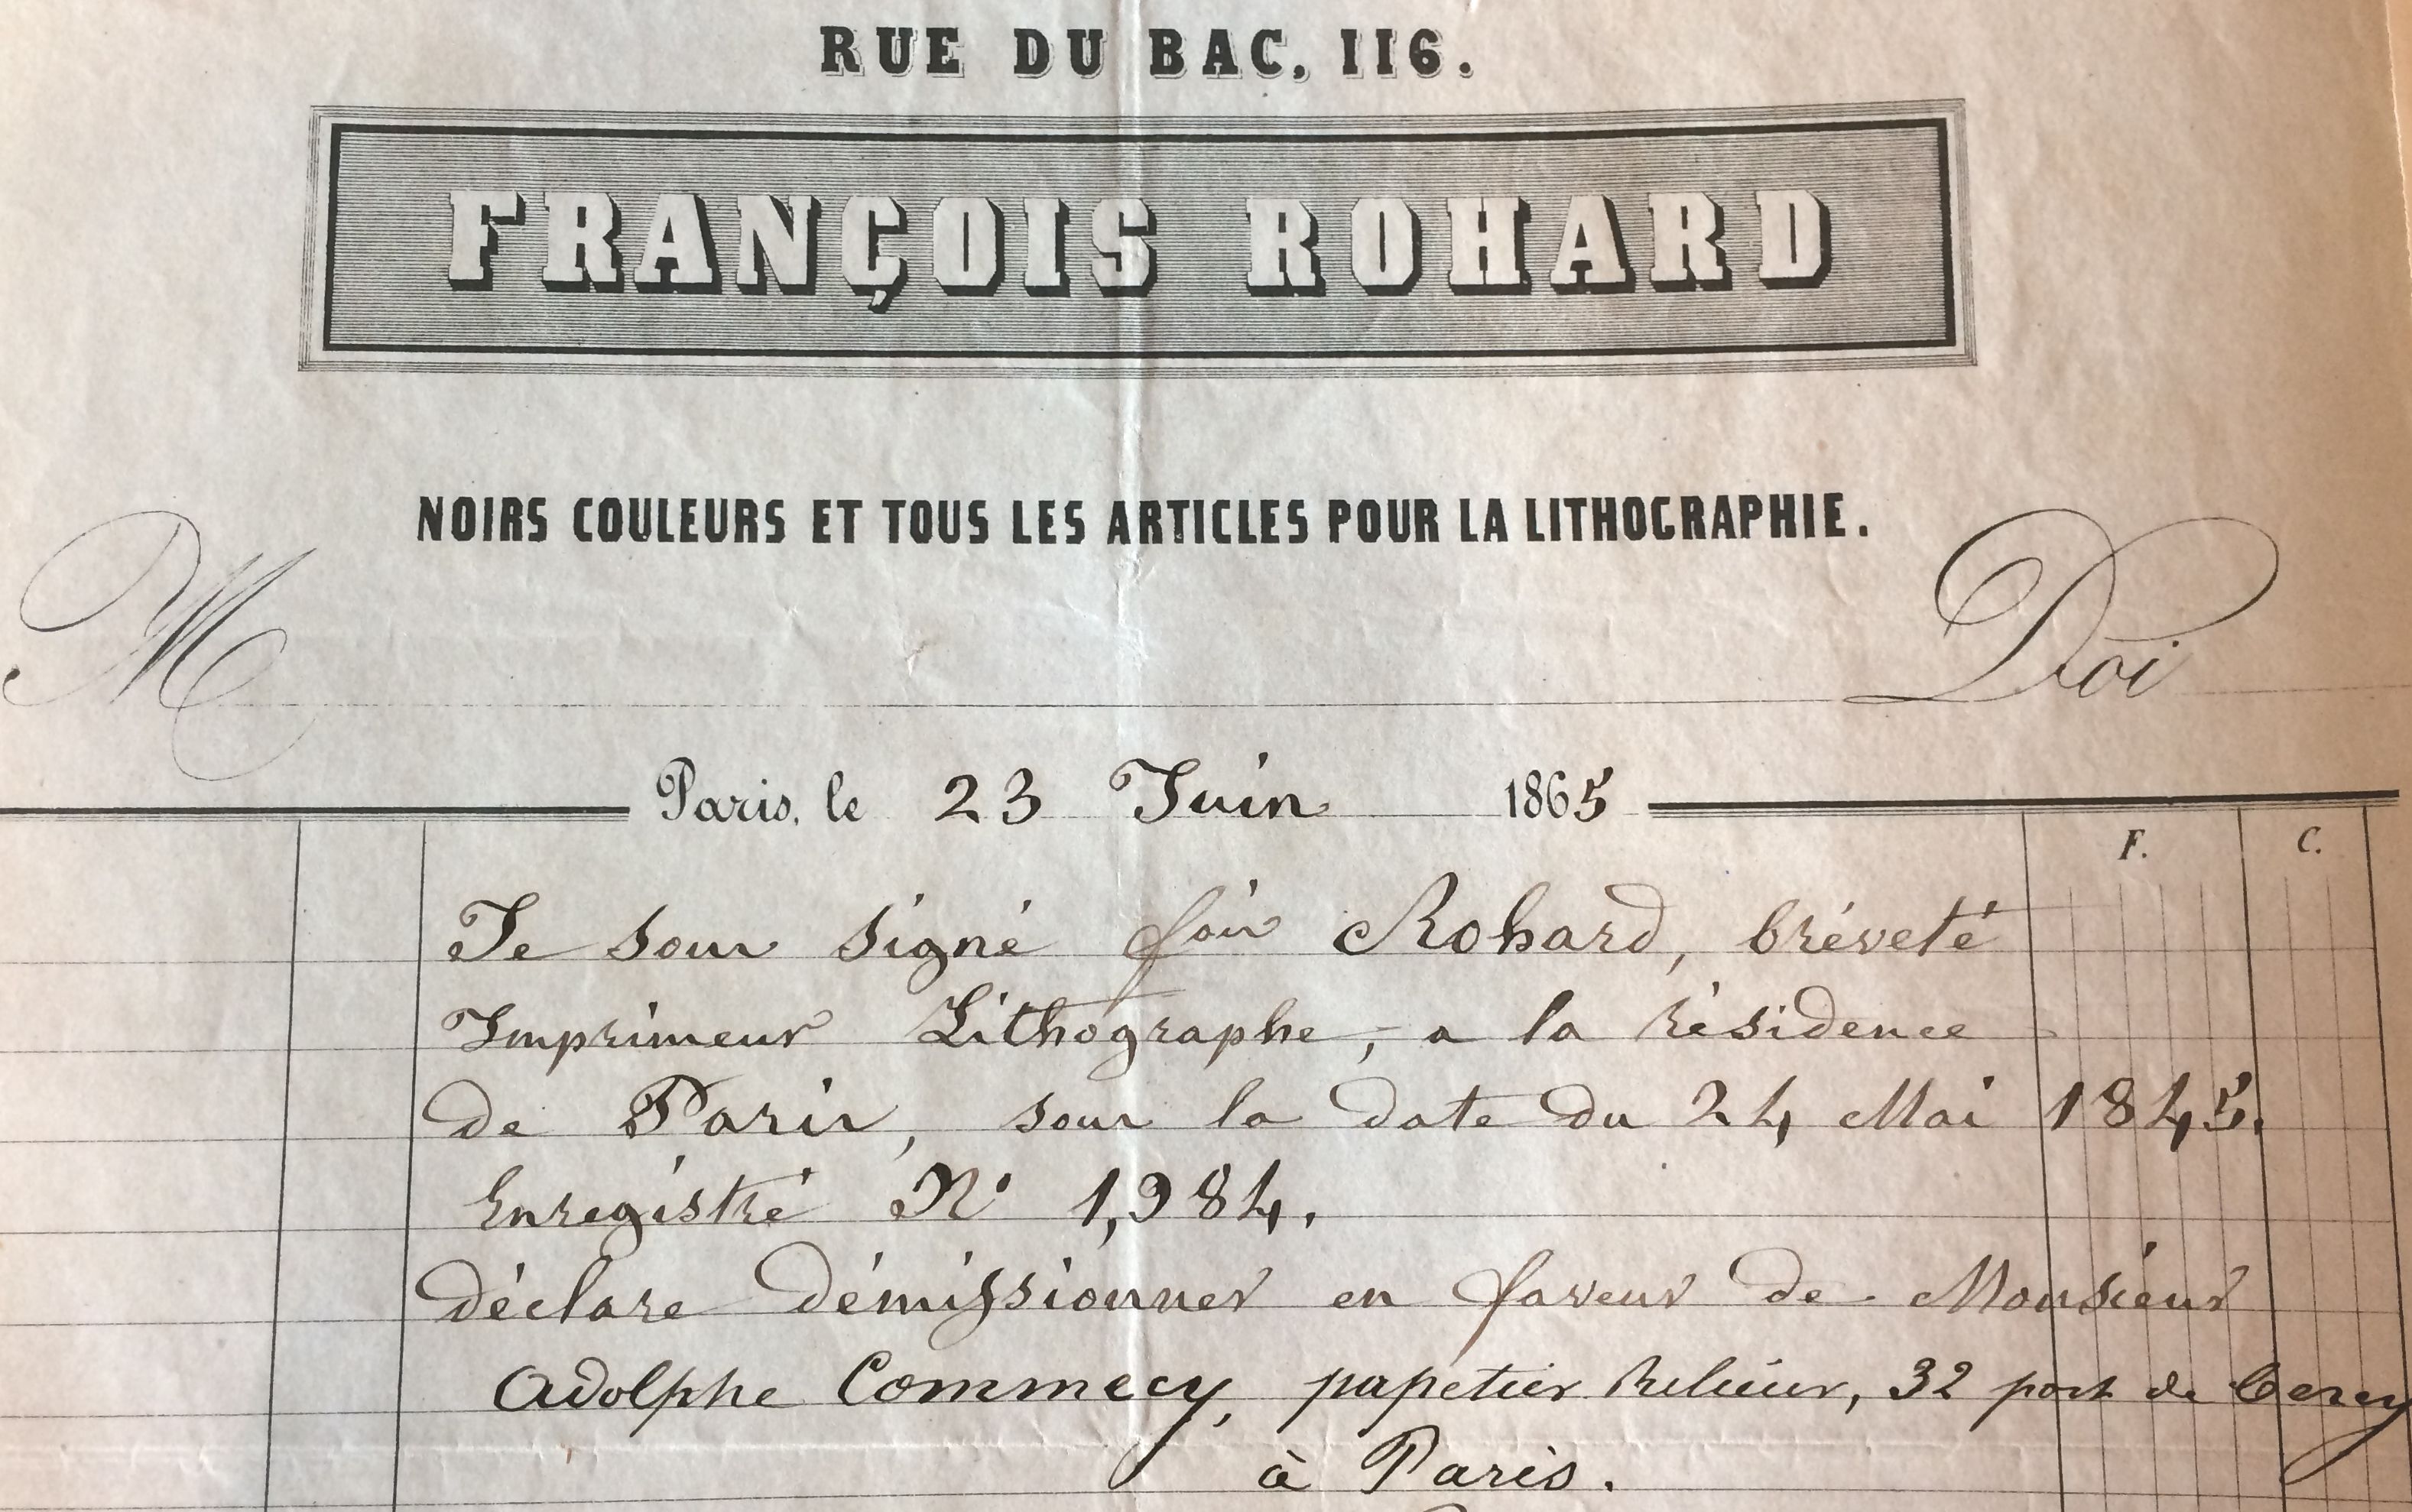 RUE DU BAC, 116.
FRANÇOIS ROHARD
NOIRS COULEURS ET TOUS LES ARTICLES POUR LA LITHOGRAPHIE.
M Doi
Paris, le 23 Juin 1865
F. C.
Je sous signé fois Rohard, bréveté
Imprimeur Lithographe, a la résidence
de Paris, sous la date du 24 Mai 1845.
Enregistré N° 1,984.
déclare démissionner en faveur de Monsieur
Adolphe Commecy, papetier Relieur, 32 port de Bercy
à Paris.